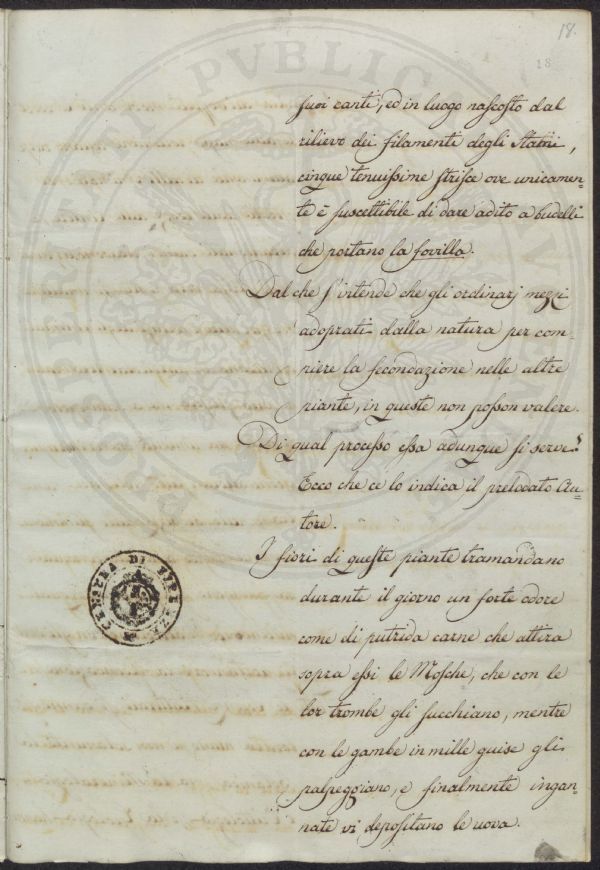 18.
18
suoi canti, ed in luogo nascosto dal
rilievo dei filamenti degli Stami,
cinque tenuissime strisce ove unicamen=
te è suscettibile di dare adito a budelli
che portano la fovilla.
Dal che s'intende che gli ordinarj mezzi
adoprati dalla natura per com=
piere la fecondazione nelle altre
piante, in queste non posson valere.
Di qual processo essa adunque si serve?
Ecco che ce lo indica il prelodato Au=
tore.
I fiori di queste piante tramandano
durante il giorno un forte odore
come di putrida carne che attira
sopra essi le Mosche, che con le
lor trombe gli succhiano, mentre
con le gambe in mille guise gli
palpeggiano, e finalmente ingan=
nate vi depositano le uova.
CENSURA DI FIRENZE